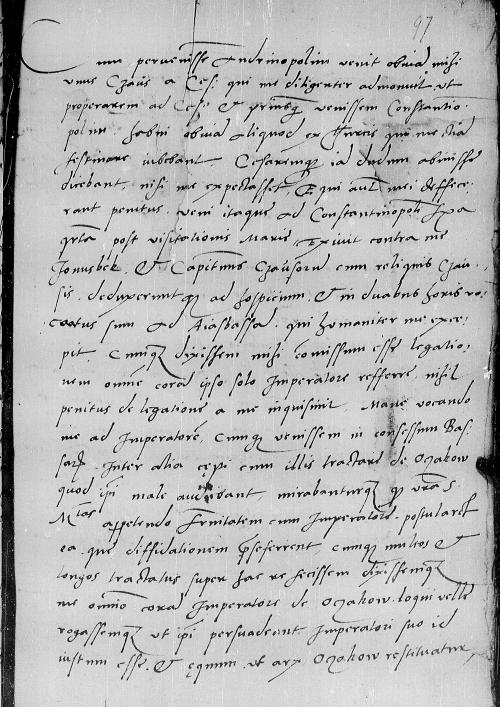 97
Cum pervenissem Andrinopolim venit obviam mihi
unus Czaus a Ces: qui me diligenter admonuit ut
properarem ad Ces: Et priusq venissem Constantino
polim habui obviam aliquos ex Thurcis qui me etiam
festinare iubebant. Cesaremq iam dudum abivisse
dicebant, nisi me expectasset, Equi autem mei deffece
rant penitus. veni itaque ad Constantinopolim
post visitationis Marie, Exivit contra me
Jonusbek, Et Capitaneus Czausorum cum reliquis Czau
sis. deduxeruntq ad hospicium. Et in duabus horis vo
catus sum ad Aiasbassa. qui humaniter me exce
pit. Cumq dixissem mihi comissum esse legatio
nem omnem coram ipso solo Imperatore refferre, nihil
penitus de legatione a me inquisivit. Mane vocando
me ad Imperatore, Cumq venissem in consessum Bas
sarum. Inter alia cepi cum illis tractare de Oczakow
quod ipsi male audiebant, mirabanturq q vra S.
Mtas appetendo firmitatem cum Imperatore. postularet
ea, que diffidationem preseferrent, Cumq multos Et
longos tractatus super hac re fecissem dixissemq
me omnino coram Imperatore de Oczakow loqui velle
rogassemq ut ipsi persuadeant Imperatori suo id
iustum esse, Et equum, ut arx Oczakow restituatur